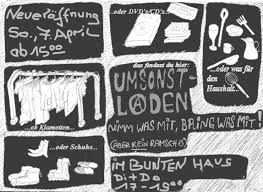 Neueröffnung
So, 7. April
ab 15⁰⁰
...oder DVD's/CD's...
das findest du hier:
UMSONST-
LADEN
NIMM WAS MIT, BRING WAS MIT!
(ABER KEIN RAMSCH)
...oder was für
den
Haushalt...
...ob Klamotten...
...oder Schuhe...
IM BUNTEN HAUS
Di + Do
17-19⁰⁰